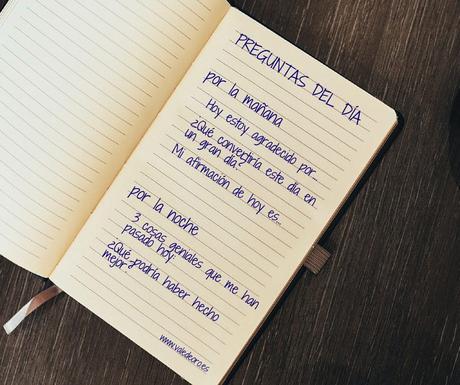 PREGUNTAS DEL DÍA
por la mañana
Hoy estoy agradecido por...
¿Qué convertiría este día en
un gran día?
Mi afirmación de hoy es...
por la noche
3 cosas geniales que me han
pasado hoy:
¿Qué podría haber hecho
mejor?
www.valedeoro.es